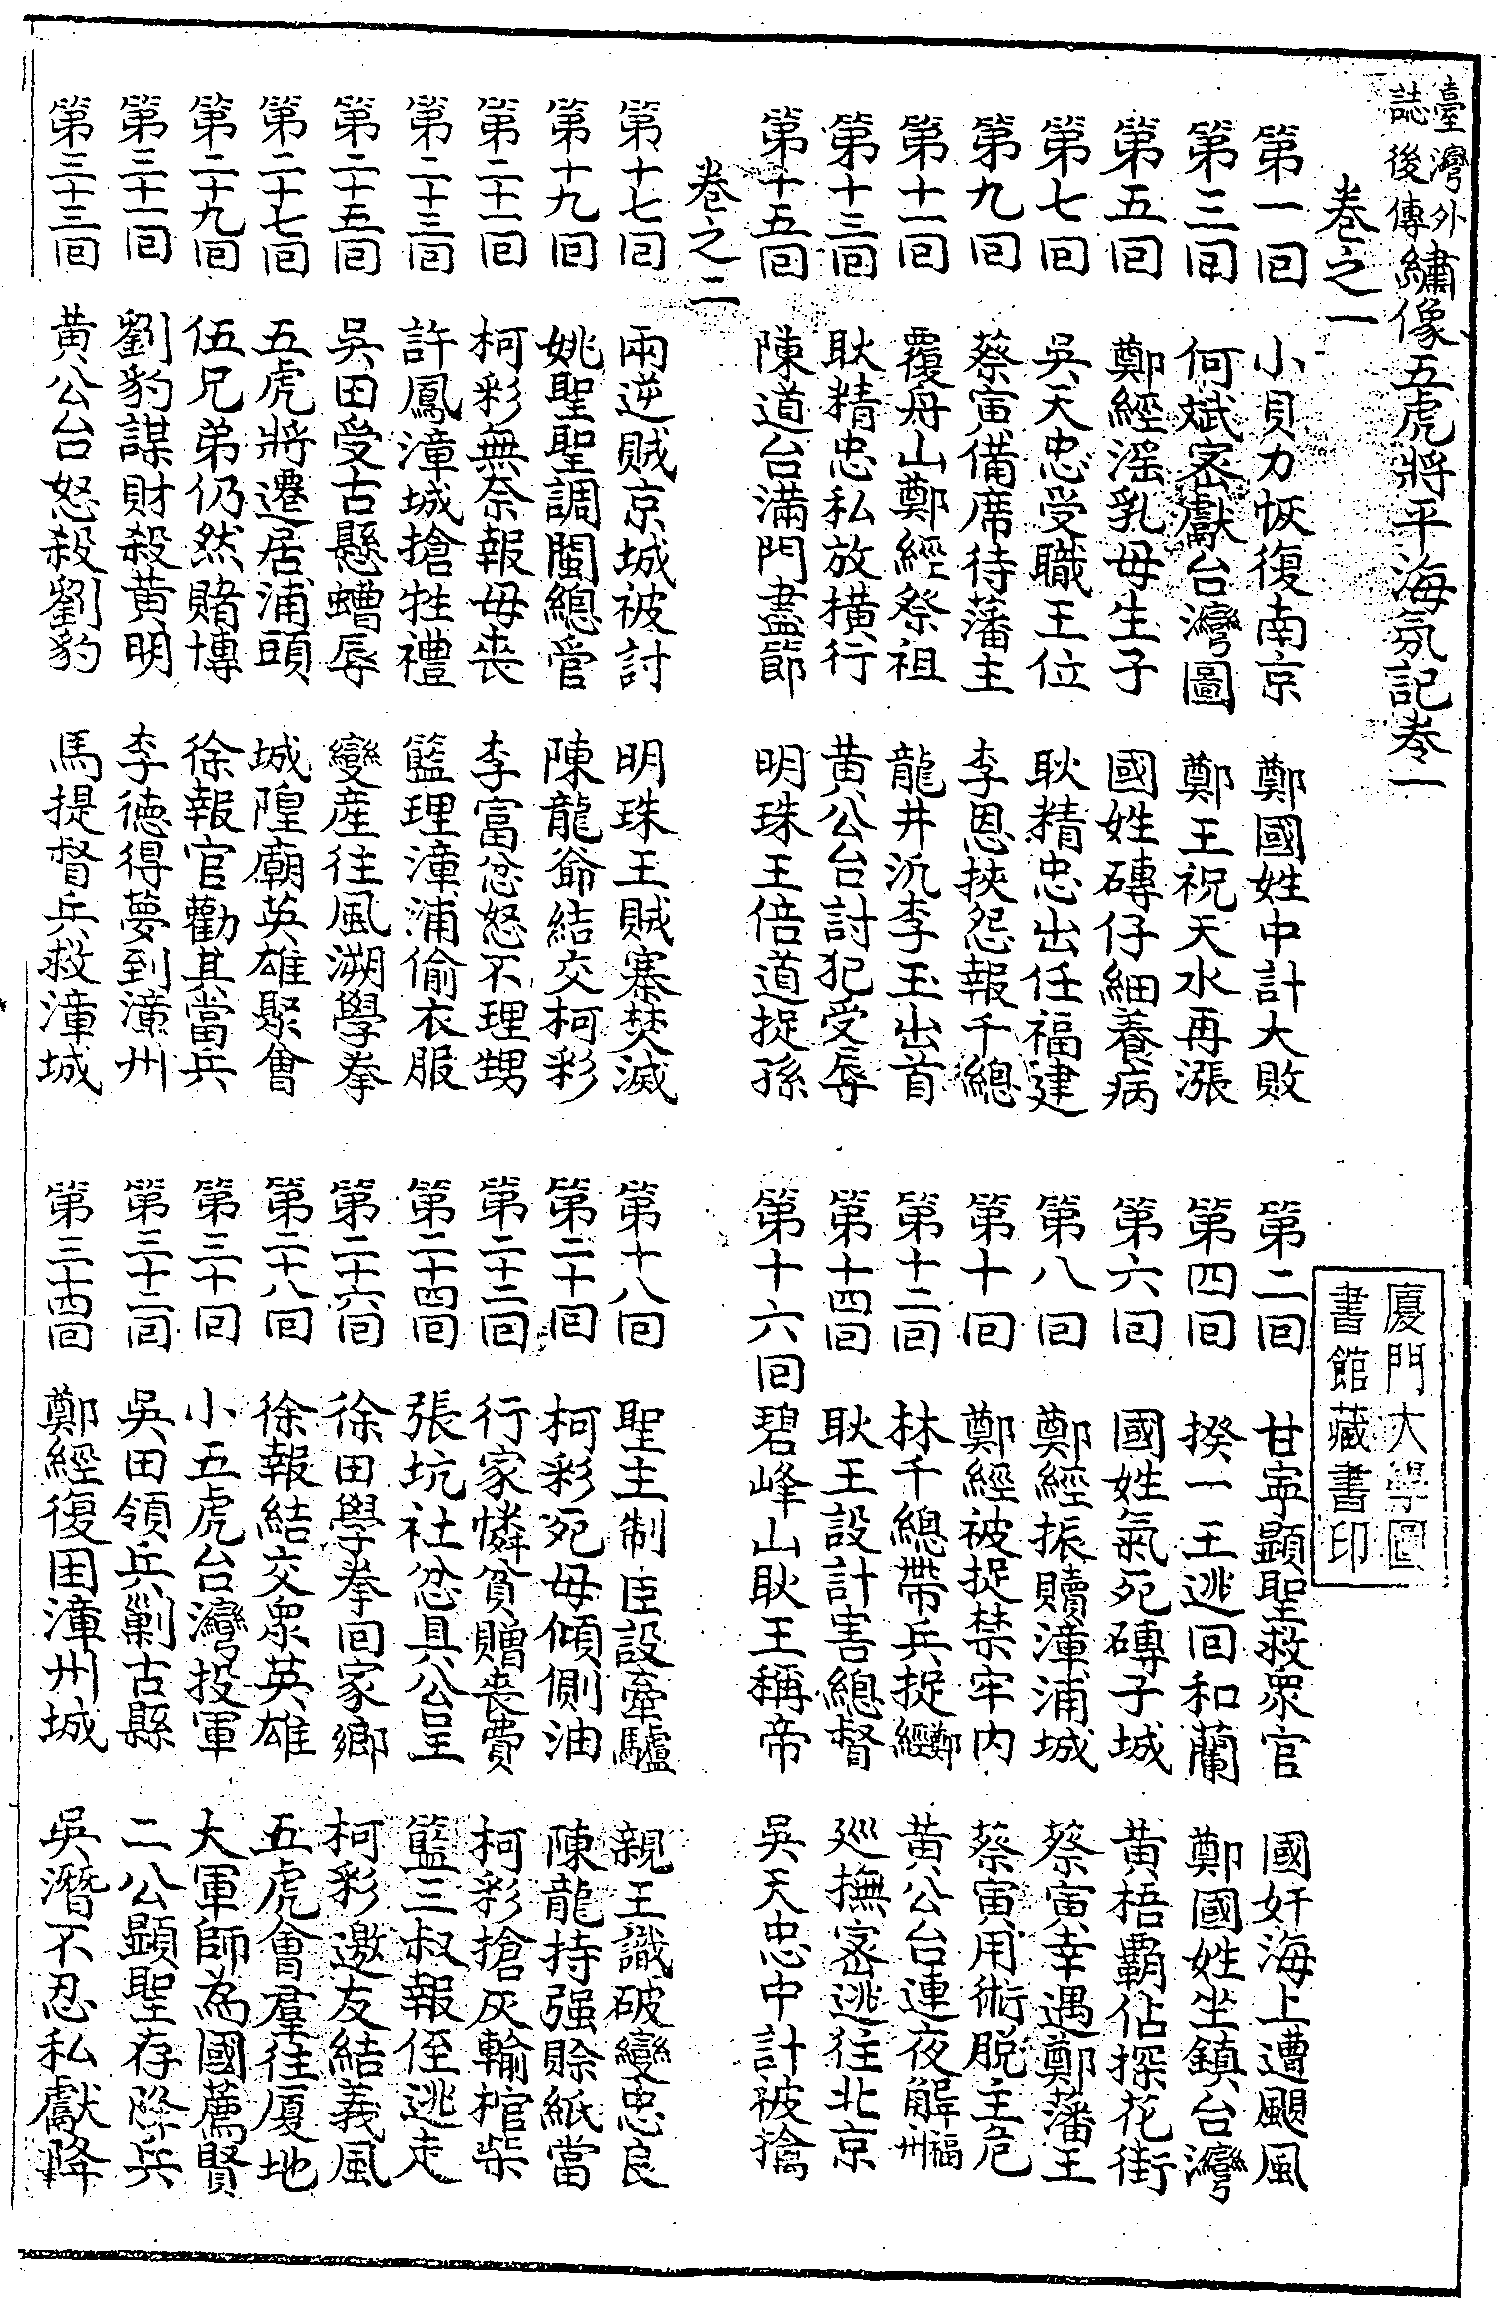 臺灣外誌後傳繡像五虎將平海氛記卷一
卷之一
第一回 小貝力恢復南京 鄭國姓中計大敗 第二回 甘寧顯聖救眾官 國奸海上遭颶風
第三回 何斌密獻台灣圖 鄭王祝天水再漲 第四回 揆一王逃回和蘭 鄭國姓坐鎮台灣
第五回 鄭經滛乳母生子 國姓磚仔細養病 第六回 國姓氣死磚子城 黃梧霸佔探花街
第七回 吳天忠受職王位 耿精忠出任福建 第八回 鄭經振贖漳浦城 蔡寅幸遇鄭藩王
第九回 蔡寅備席待藩主 李恩挾怨報千總 第十回 鄭經被捉禁牢內 蔡寅用術脫主危
第十一回 覆舟山鄭經祭祖 龍井汛李玉出首 第十二回 林千總帶兵捉鄭經 黃公台連夜解福州
第十三回 耿精忠私放橫行 黃公台討犯受辱 第十四回 耿王設計害總督 巡撫密逃往北京
第十五回 陳道台滿門盡節 明珠王倍道捉孫 第十六回 碧峰山耿王稱帝 吳天忠中計被擒
卷之二
第十七回 兩逆賊京城被討 明珠王賊寨焚滅 第十八回 聖主制臣設牽驢 親王識破變忠良
第十九回 姚聖聖調閩總督 陳龍爺結交柯彩 第二十回 柯彩死母傾側油 陳龍持强賒紙當
第二十一回 柯彩無奈報母喪 李富忿怒不理甥 第二十二回 行家憐貧贈喪費 柯彩搶灰輸棺柴
第二十三回 許鳳漳城搶牲禮 籃理漳浦偷衣服 第二十四回 張坑社忿具公呈 籃三叔報侄逃走
第二十五回 吳田受古懸螬辱 變產往風溯學拳 第二十六回 徐田學拳回家鄉 柯彩邀友結義風
第二十七回 五虎將遷居浦頭 城隍廟英雄聚會 第二十八回 徐報結交眾英雄 五虎會羣往厦地
第二十九回 伍兄弟仍然賭博 徐報官勸其當兵 第三十回 小五虎台灣投軍 大軍師為國薦賢
第三十一回 劉豹謀財殺黃明 李德得夢到漳州 第三十二回 吳田領兵剿古縣 二公顯聖存降兵
第三十三回 黃公台怒殺劉豹 馬提督兵救漳城 第三十四回 鄭經復困漳州城 吳潛不忍私獻降
廈門大學圖書館藏書印